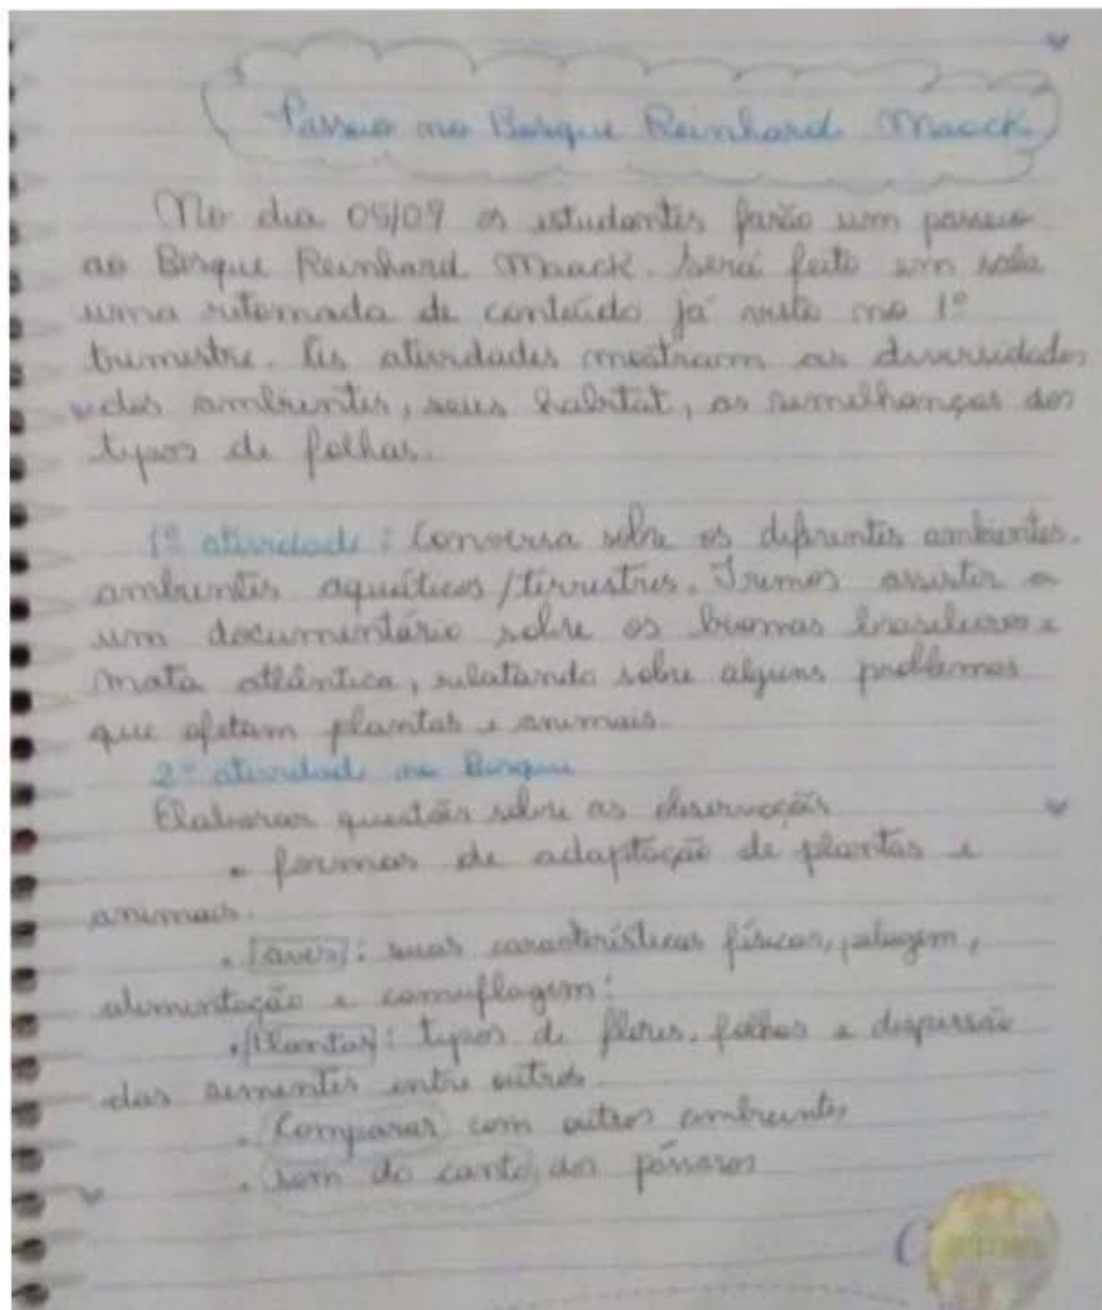 Passeio no Bosque Reinhard Maack
No dia 05/09 os estudantes farão um passeio
ao Bosque Reinhard Maack. Será feito em sala
uma retomada de conteúdo já visto no 1º
trimestre. As atividades mostraram as diversidades
dos ambientes, seus habitat, as semelhanças dos
tipos de folhas.
1ª atividade: Conversa sobre os diferentes ambientes.
ambientes aquáticos/terrestres. Iremos assistir a
um documentário sobre os biomas brasileiros e
mata atlântica, relatando sobre alguns problemas
que afetam plantas e animais.
2ª atividade no Bosque
Elaborar questões sobre as observações
• formas de adaptação de plantas e
animais.
• aves: suas características físicas, pelagem,
alimentação e camuflagem:
• Plantas: tipos de flores, folhas e dispersão
das sementes entre outros.
• Comparar com outros ambientes
• som do canto dos pássaros